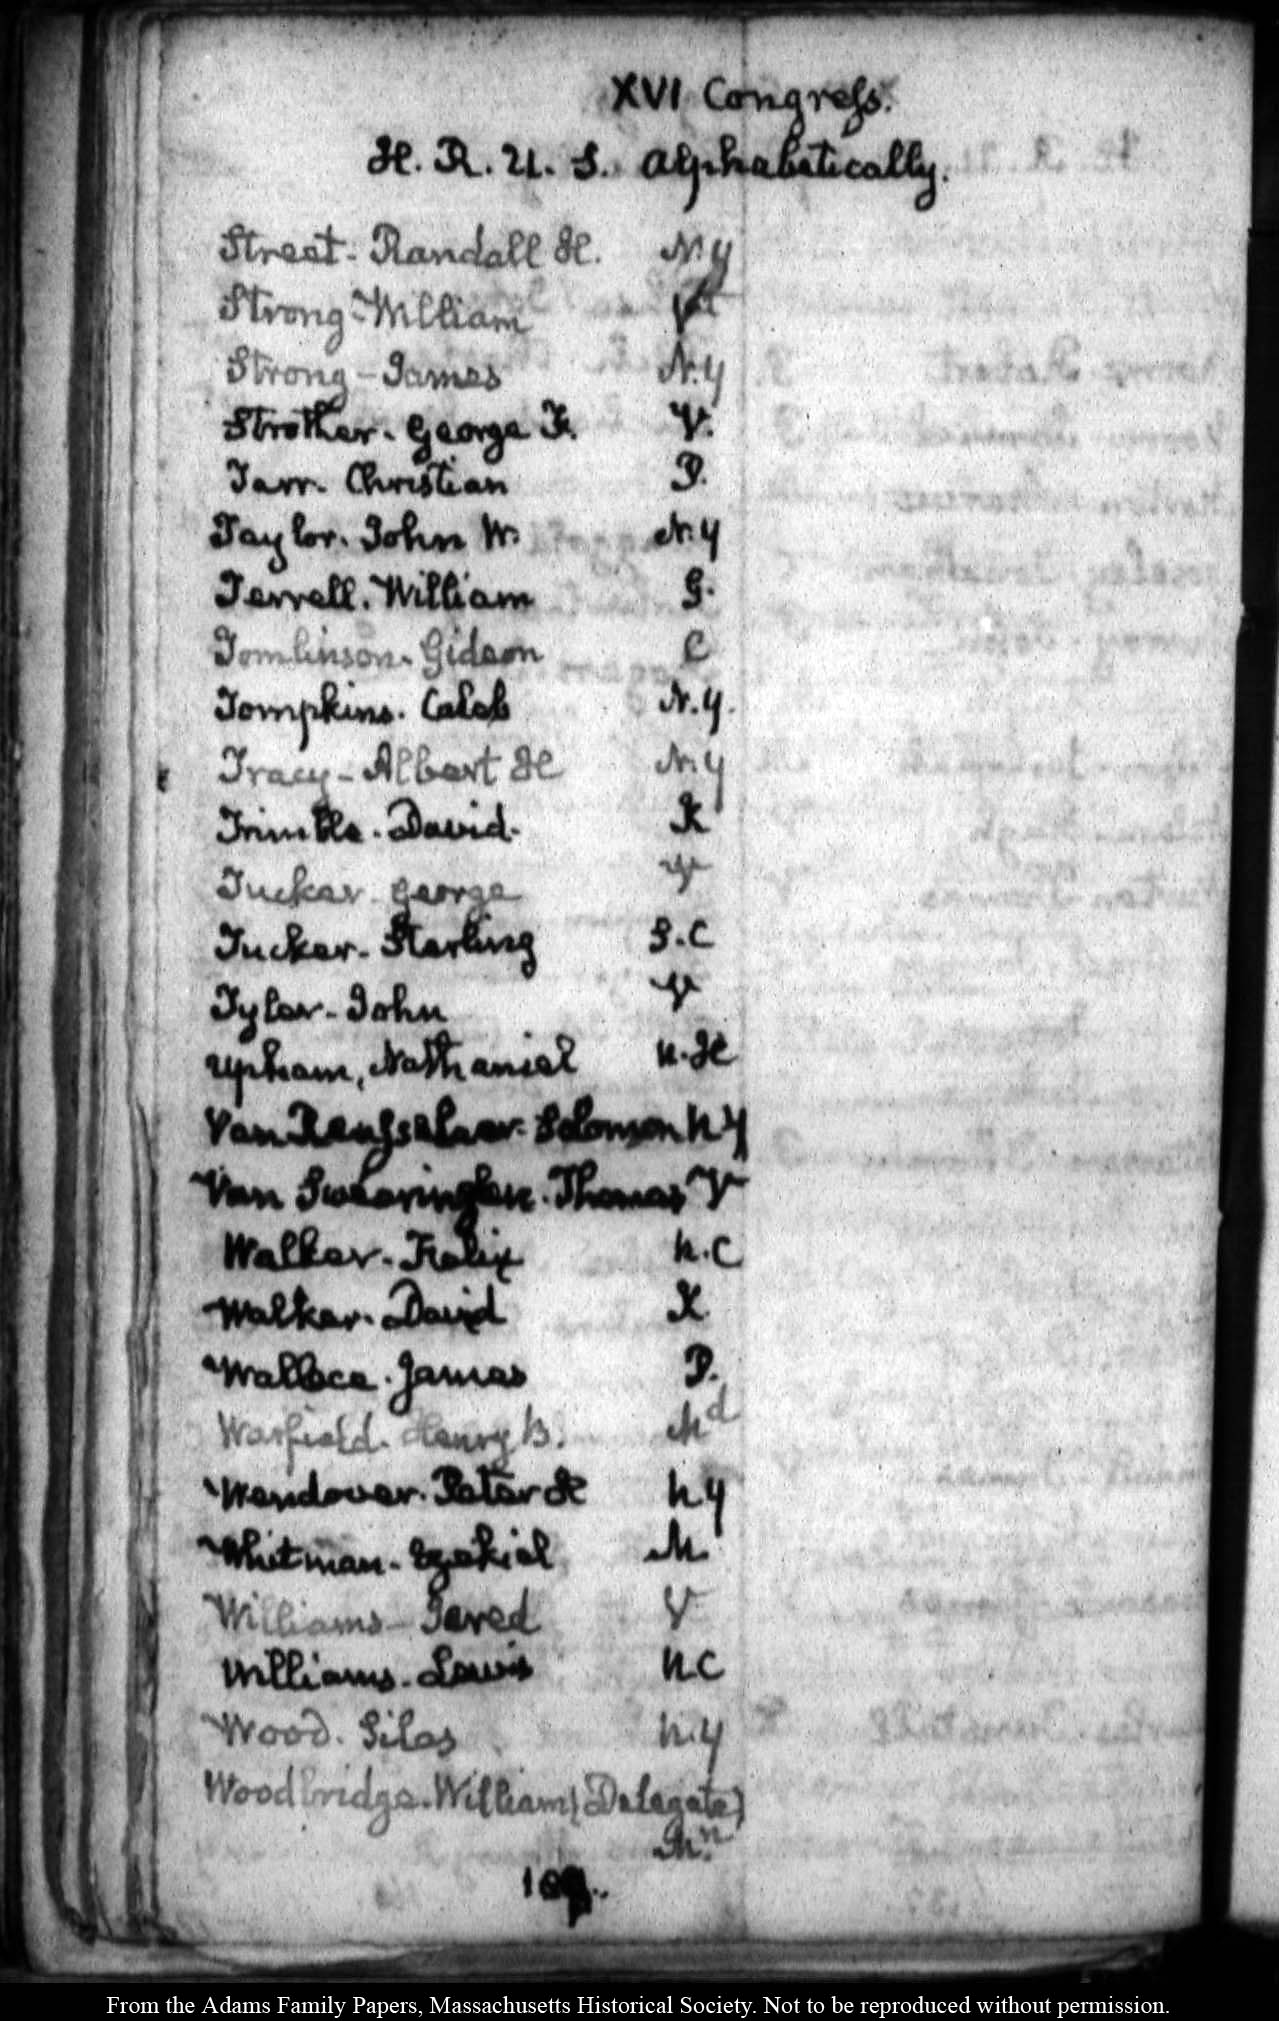 XVI Congress.
H. R. U. S. Alphabetically.
Street - Randall H. N. Y
Strong - William Vt
Strong - James N. Y
Strother. George F. V.
Tarr. Christian P.
Taylor. John W. N. Y
Terrell. William G.
Tomlinson. Gideon C
Tompkins. Caleb N. Y.
Tracy - Albert H N. Y
Trimble. David. K
Tucker - George V
Tucker - Starling S. C
Tyler - John V
Upham, Nathaniel N. H
Van Rensselaer. Solomon N Y
Van Swearingen. Thomas V
Walker - Felix N. C
Walker. David K
Wallace. James P.
Warfield. Henry B. Md
Wendover. Peter H N Y
Whitman - Ezekiel M
Williams - Jared V
Williams. Lewis N C
Wood. Silas N. Y
Woodbridge. William (Delegate)
From the Adams Family Papers, Massachusetts Historical Society. Not to be reproduced without permission.